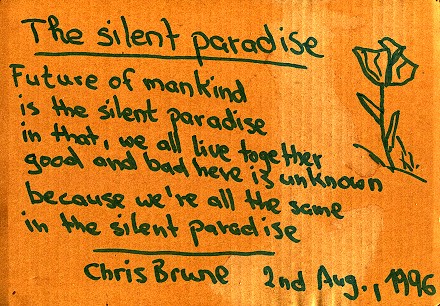 The silent paradise
Future of mankind
is the silent paradise
in that, we all live together
good and bad here is unknown
because we're all the same
in the silent paradise
Chris Brune 2nd Aug., 1996